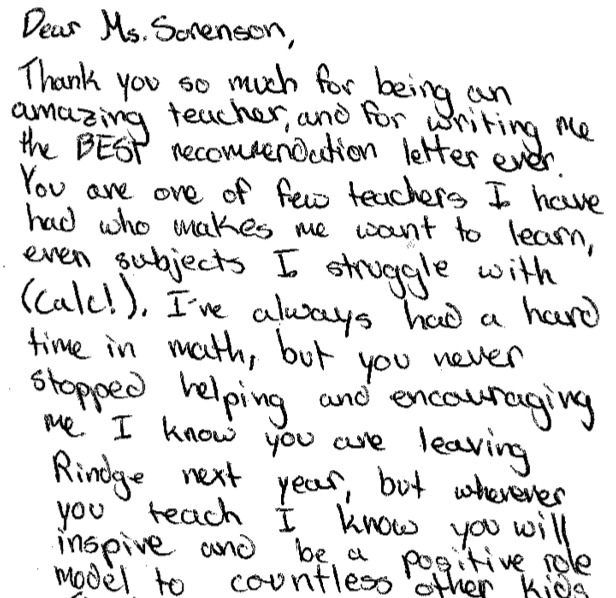 Dear Ms. Sorenson,
Thank you so much for being an
amazing teacher, and for writing me
the BEST recommendation letter ever.
You are one of few teachers I have
had who makes me want to learn,
even subjects I struggle with
(Calc!). I've always had a hard
time in math, but you never
stopped helping and encouraging
me. I know you are leaving
Rindge next year, but wherever
you teach I know you will
inspire and be a positive role
model to countless other kids